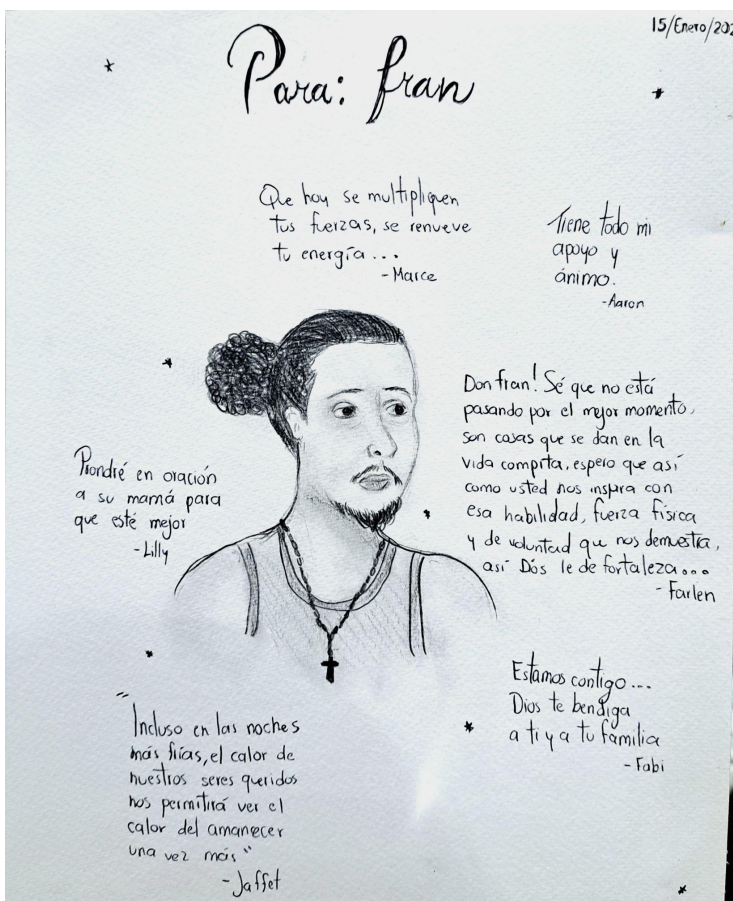 15/Enero/202
Para: fran
Que hoy se multipliquen
tus fuerzas, se renueve
tu energía...
-Marce
Tiene todo mi
apoyo y
ánimo.
-Aaron
Don fran! Sé que no está
pasando por el mejor momento,
son cosas que se dan en la
vida compita, espero que así
como usted nos inspira con
esa habilidad, fuerza física
y de voluntad que nos demuestra,
así Dios le de fortaleza...
- Farlen
Pondré en oración
a su mamá para
que esté mejor
-Lilly
Estamos contigo...
Dios te bendiga
a ti y a tu familia
- Fabi
"Incluso en las noches
más frías, el calor de
nuestros seres queridos
nos permitirá ver el
calor del amanecer
una vez más"
- Jaffet